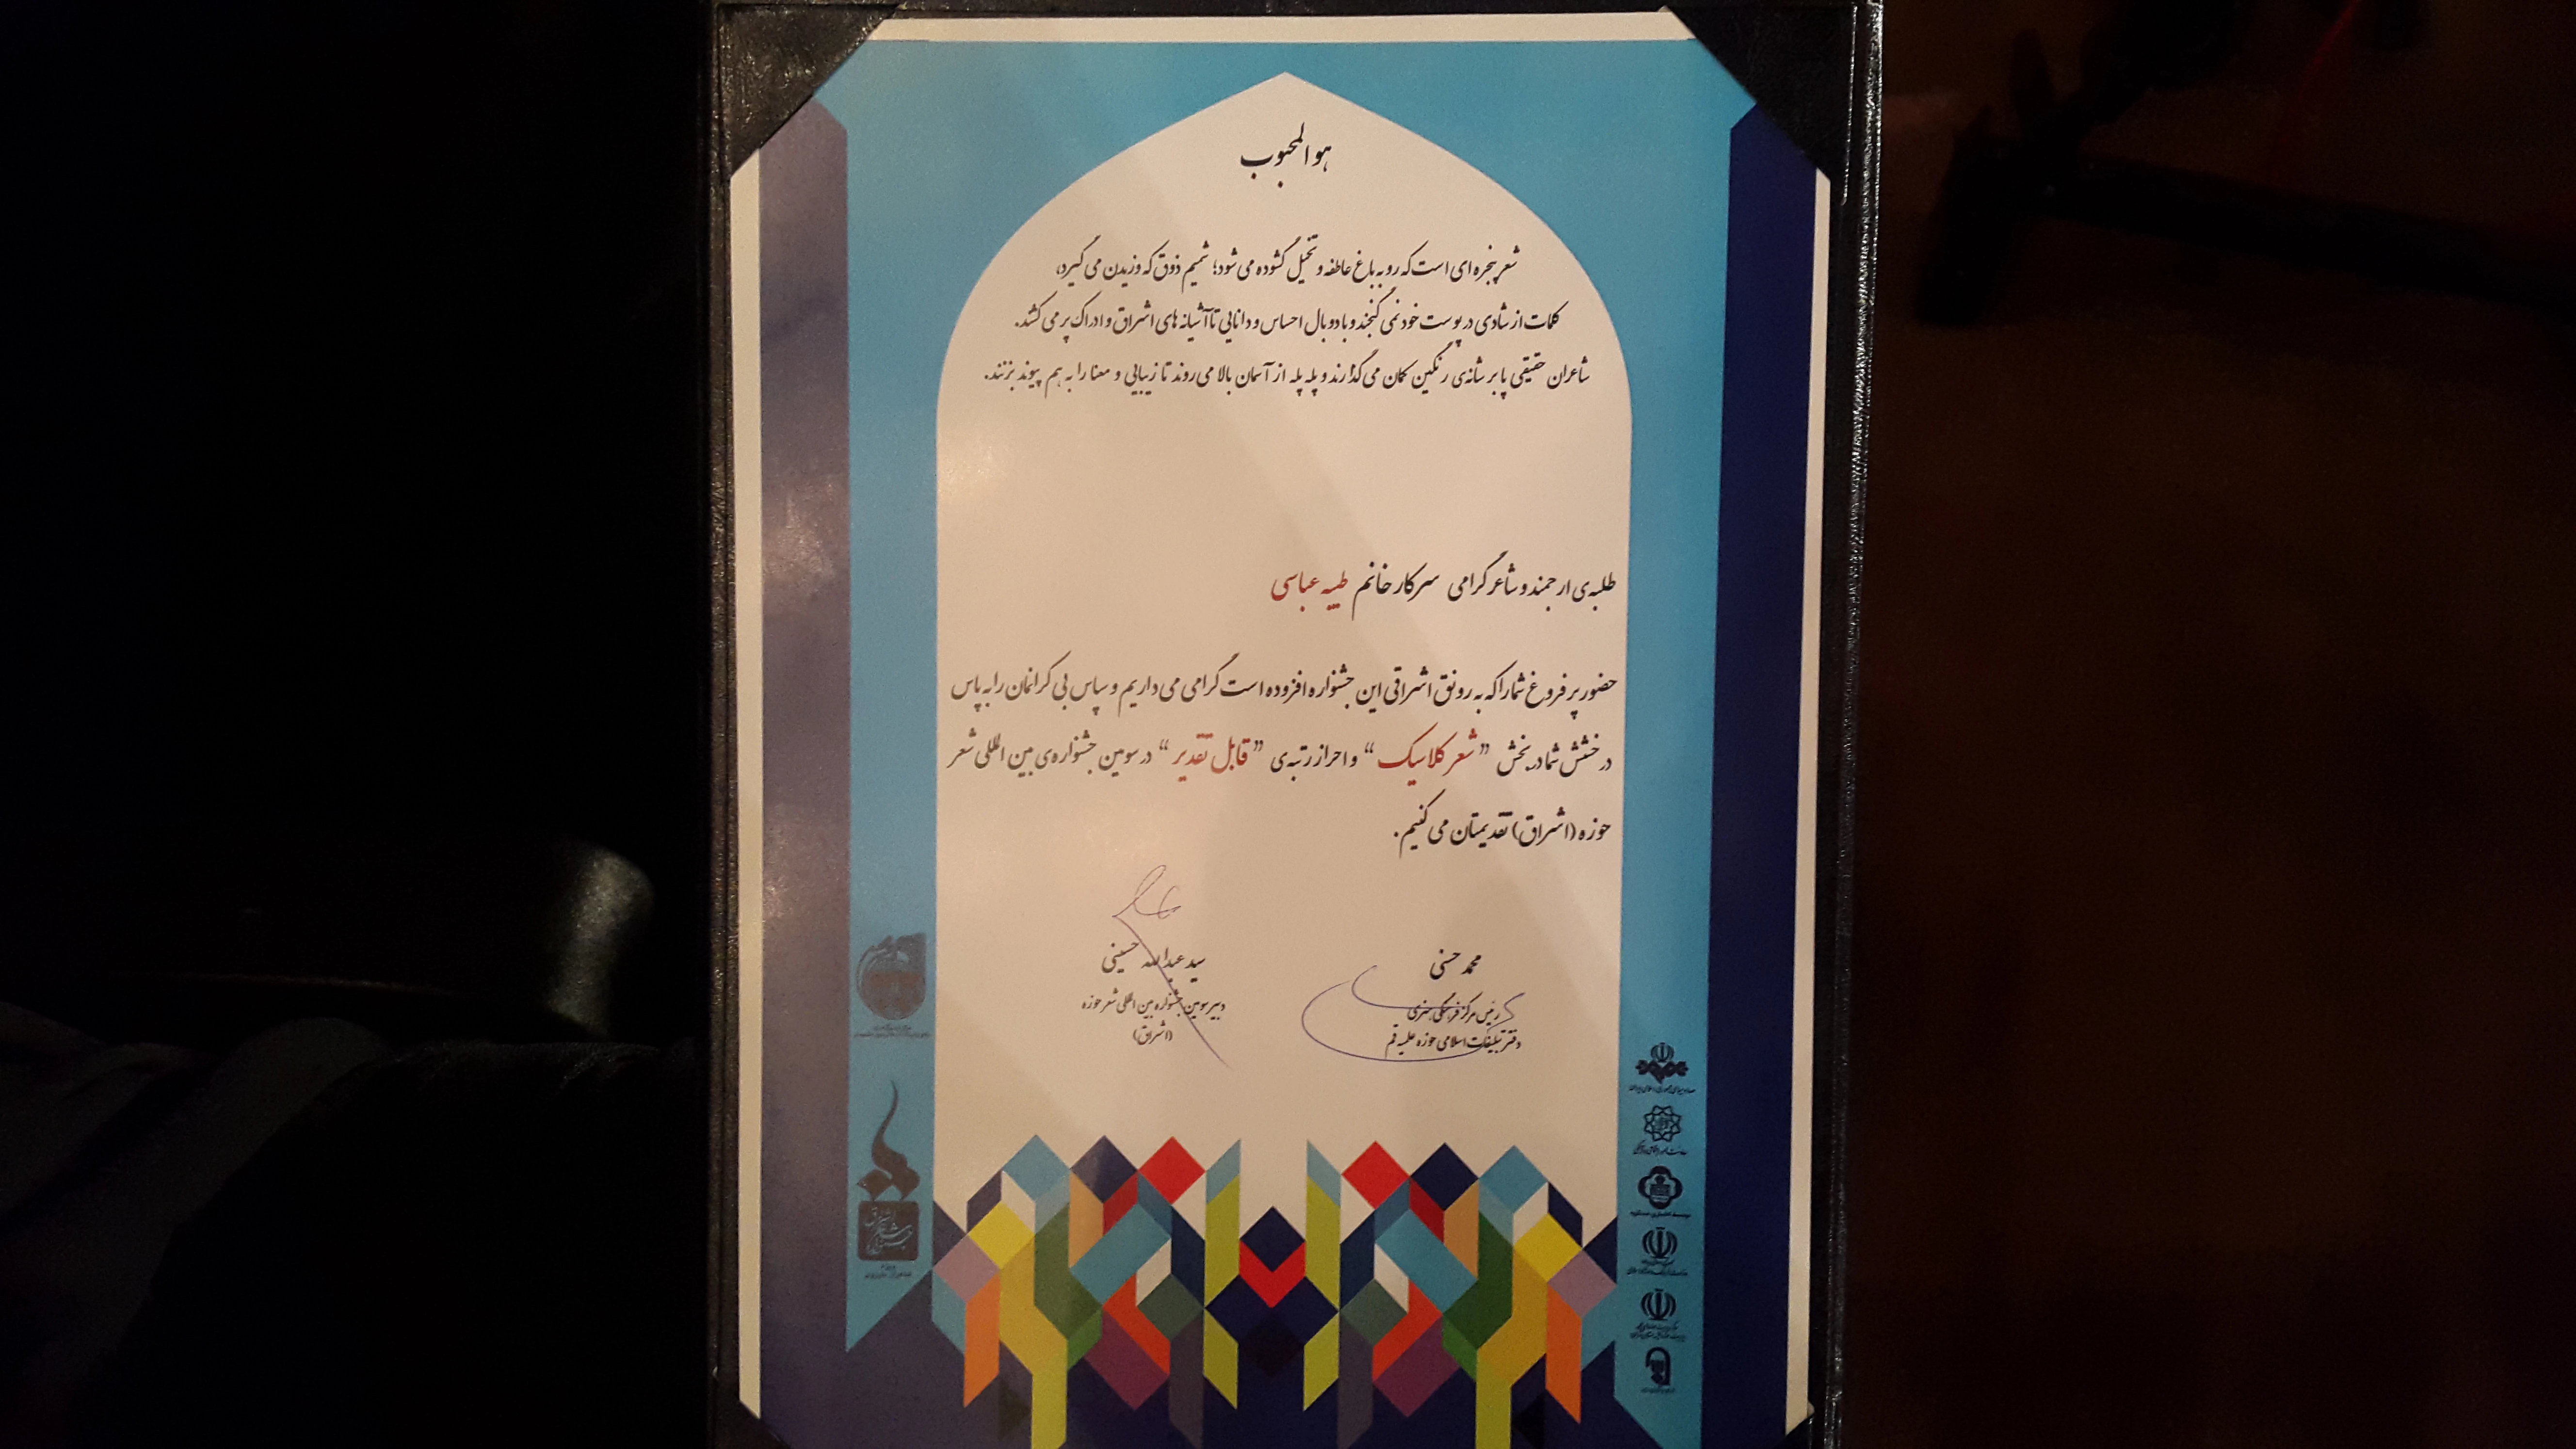 هو المحبوب
شعر پنجره ای است که رو به باغ عاطفه و تخیل گشوده می شود؛ شمیم ذوق که وزیدن می گیرد،
کلمات از شادی در پوست خود نمی گنجند و با دو بال احساس و دانایی تا آشیانه های اشراق و ادراک پر می کشند.
شاعران حقیقی پا بر شانه ی رنگین کمان می گذارند و پله پله از آسمان بالا می روند تا زیبایی و معنا را به هم پیوند بزنند.
طلبه ی ارجمند و شاعر گرامی سرکار خانم طیبه عباسی
حضور پر فروغ شما را که به رونق اشراقی این جشنواره افزوده است گرامی می داریم و سپاس بی کرانمان را به پاس
درخشش شما در بخش "شعر کلاسیک" و احراز رتبه ی "قابل تقدیر" در سومین جشنواره ی بین المللی شعر
حوزه (اشراق) تقدیمتان می کنیم.
محمد حسنی
رئیس مرکز فرهنگی هنری
دفتر تبلیغات اسلامی حوزه علمیه قم
سید عبدالله حسینی
دبیر سومین جشنواره بین المللی شعر حوزه
(اشراق)